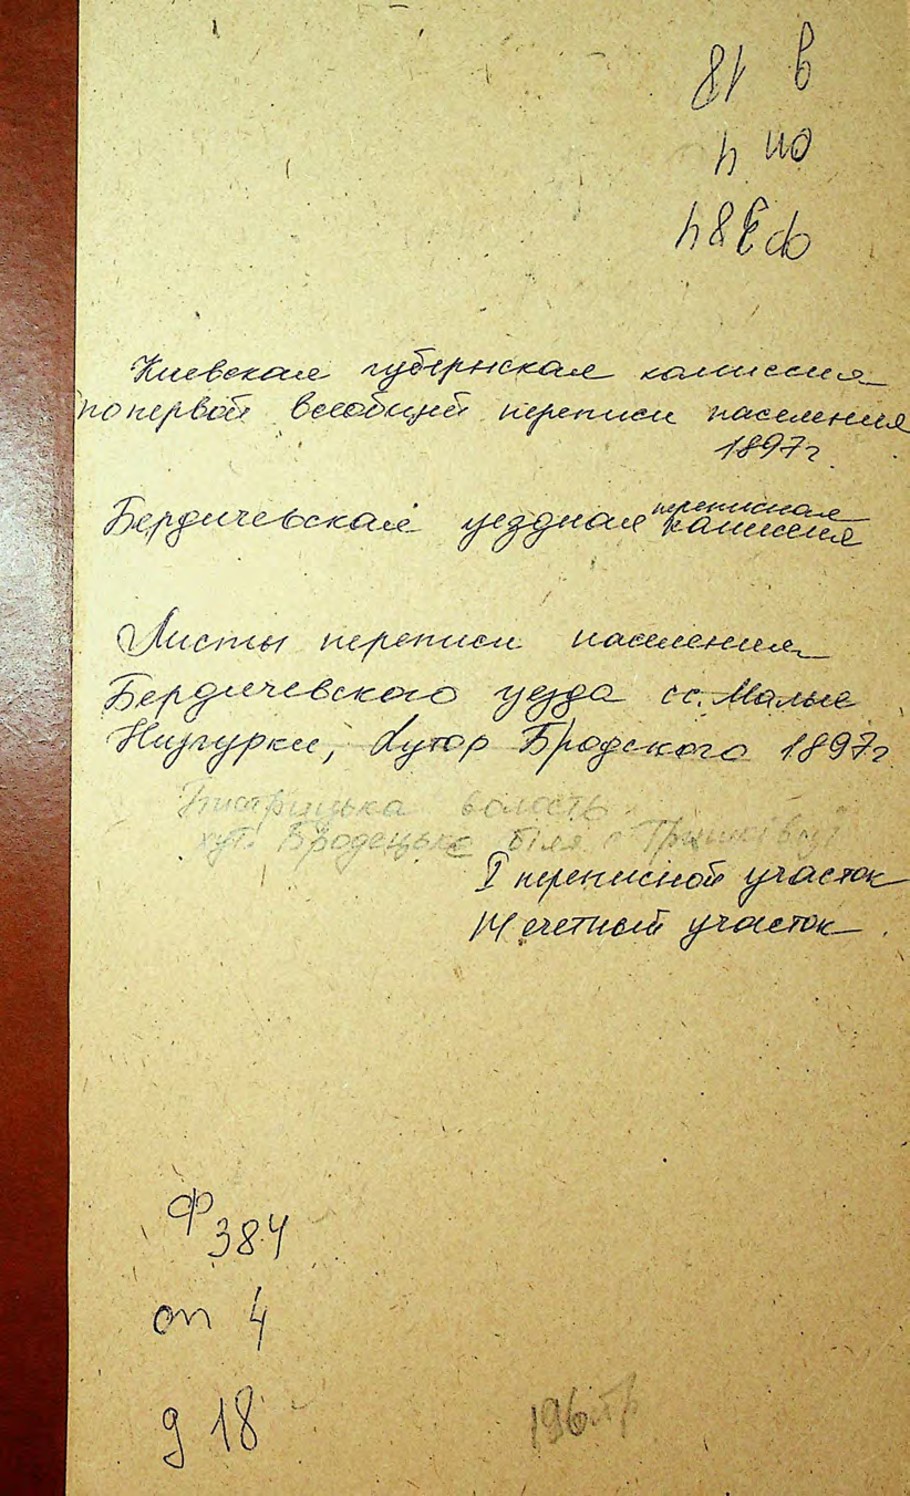 ф 384
оп 4
д 18
Киевская губернская комиссия
по первой всеобщей переписи населения
1897г.
Бердичевская уездная переписная комиссия
Листы переписи населения
Бердичевского уезда сс. Малые
Низгурки, Хутор Бродского 1897г
волость
хут. Бродецьке біля с
I переписной участок
14 счетный участок
Ф 384
оп 4
д 18
196